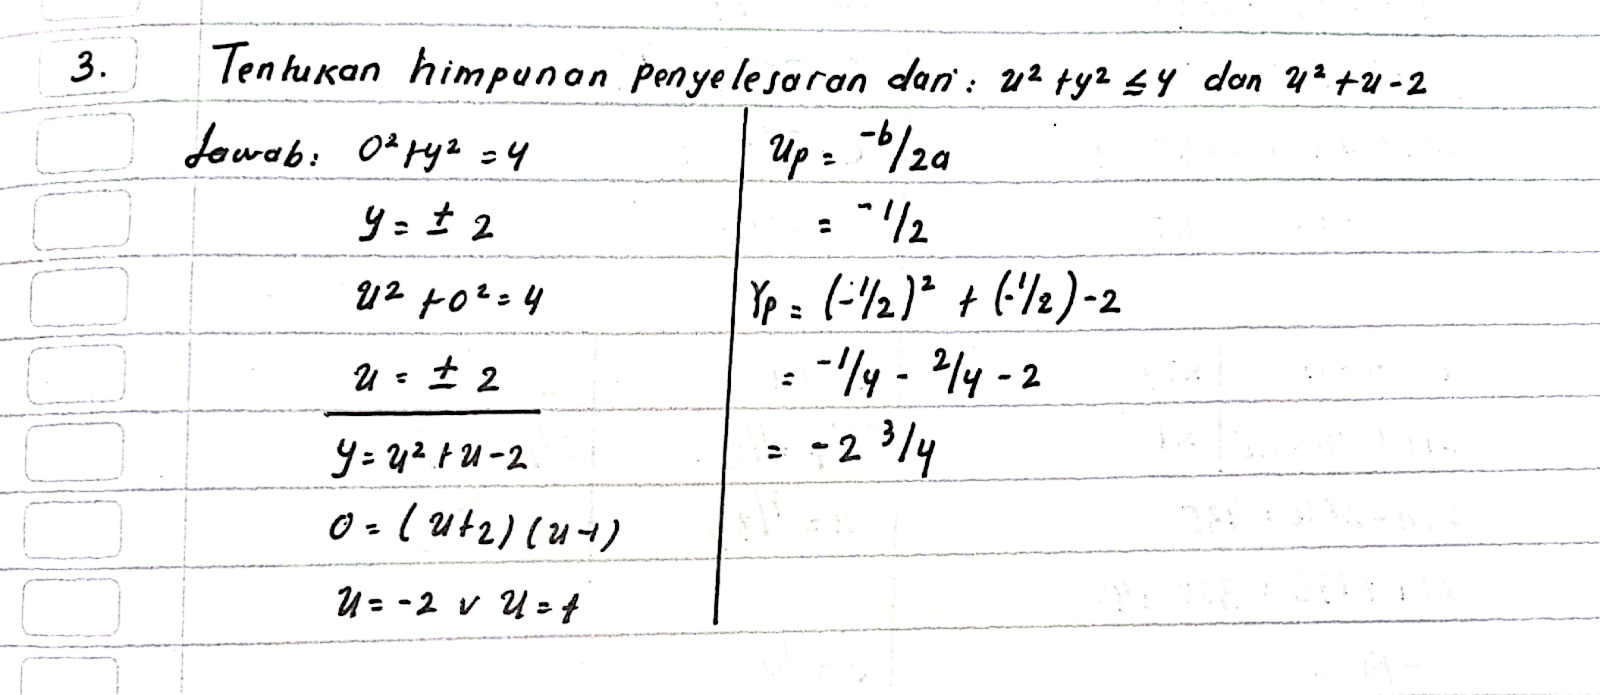 3. Tentukan himpunan penyelesaian dari : x² + y² ≤ 4 dan x² + x - 2
Jawab : 0² + y² = 4
y = ± 2
x² + 0² = 4
x = ± 2
y = x² + x - 2
0 = (x + 2) (x - 1)
x = -2 v x = 1
xp = -b/2a
= -1/2
Yp = (-1/2)² + (-1/2) - 2
= -1/4 - 2/4 - 2
= -2 3/4